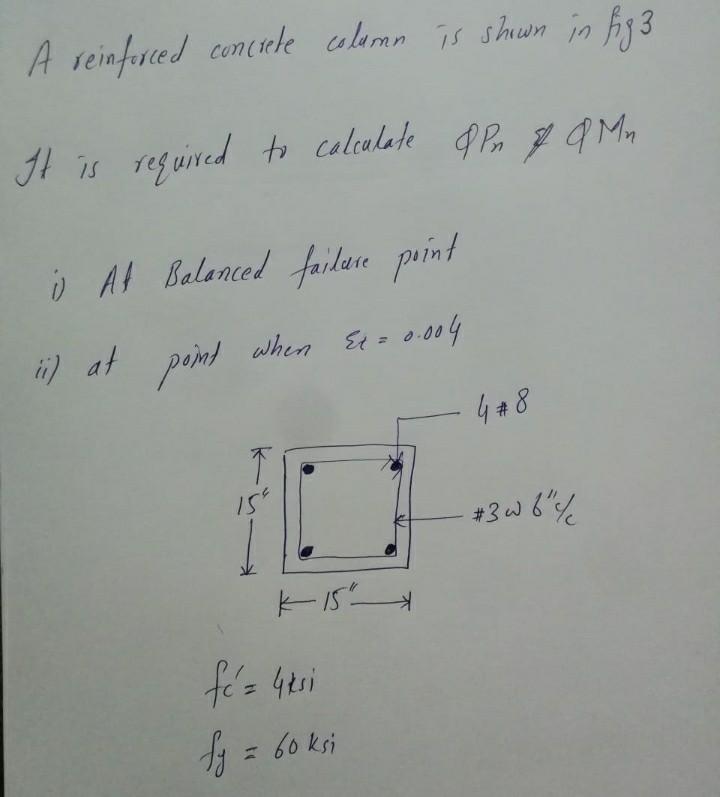 A reinforced concrete column is shown in fig 3
It is required to calculate ΦPn & ΦMn
i) At Balanced failure point
ii) at point when εt = 0.004
4 # 8
15"
#3 @ 6" c/c
15"
fc' = 4 ksi
fy = 60 ksi